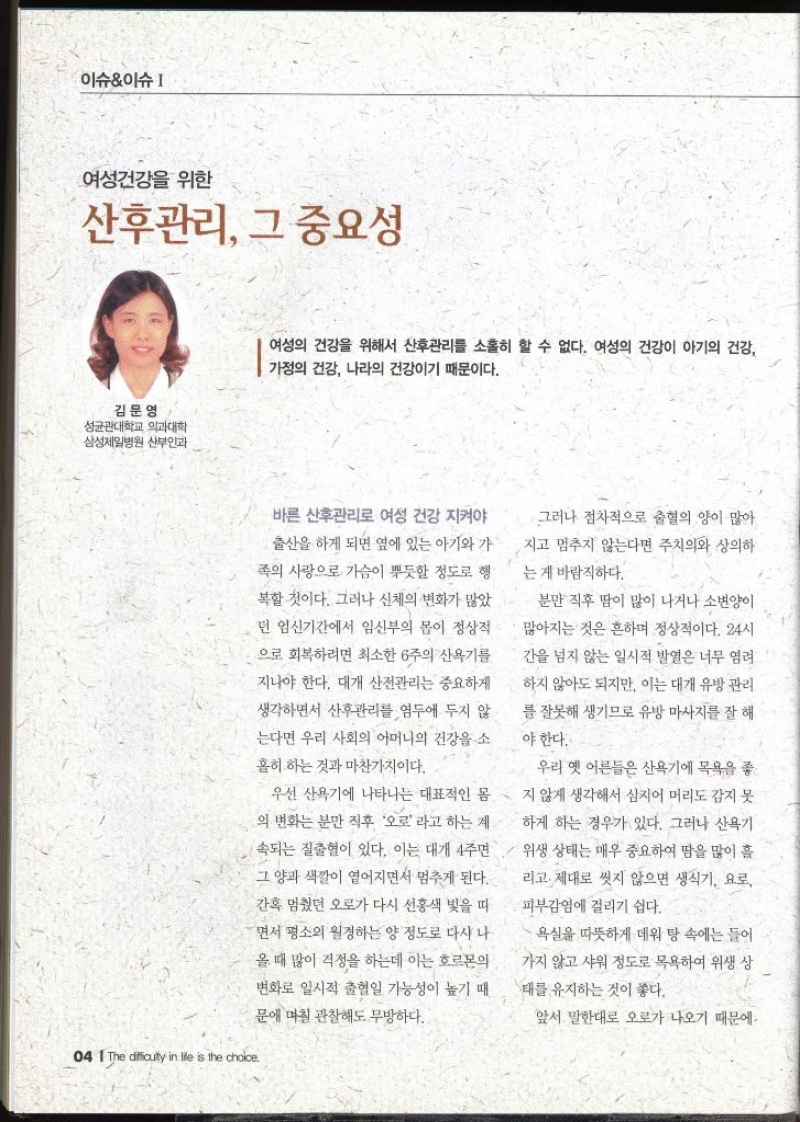 이슈&이슈 I
여성건강을 위한
산후관리, 그 중요성
여성의 건강을 위해서 산후관리를 소홀히 할 수 없다. 여성의 건강이 아기의 건강,
가정의 건강, 나라의 건강이기 때문이다.
김 문 영
성균관대학교 의과대학
삼성제일병원 산부인과
바른 산후관리로 여성 건강 지켜야
출산을 하게 되면 옆에 있는 아기와 가
족의 사랑으로 가슴이 뿌듯할 정도로 행
복할 것이다. 그러나 신체의 변화가 많았
던 임신기간에서 임신부의 몸이 정상적
으로 회복하려면 최소한 6주의 산욕기를
지나야 한다. 대개 산전관리는 중요하게
생각하면서 산후관리를 염두에 두지 않
는다면 우리 사회의 어머니의 건강을 소
홀히 하는 것과 마찬가지이다.
우선 산욕기에 나타나는 대표적인 몸
의 변화는 분만 직후 '오로' 라고 하는 계
속되는 질출혈이 있다. 이는 대개 4주면
그 양과 색깔이 옅어지면서 멈추게 된다.
간혹 멈췄던 오로가 다시 선홍색 빛을 띠
면서 평소의 월경하는 양 정도로 다시 나
올 때 많이 걱정을 하는데 이는 호르몬의
변화로 일시적 출혈일 가능성이 높기 때
문에 며칠 관찰해도 무방하다.
그러나 점차적으로 출혈의 양이 많아
지고 멈추지 않는다면 주치의와 상의하
는 게 바람직하다.
분만 직후 땀이 많이 나거나 소변양이
많아지는 것은 흔하며 정상적이다. 24시
간을 넘지 않는 일시적 발열은 너무 염려
하지 않아도 되지만, 이는 대개 유방 관리
를 잘못해 생기므로 유방 마사지를 잘 해
야 한다.
우리 옛 어른들은 산욕기에 목욕을 좋
지 않게 생각해서 심지어 머리도 감지 못
하게 하는 경우가 있다. 그러나 산욕기
위생 상태는 매우 중요하여 땀을 많이 흘
리고 제대로 씻지 않으면 생식기, 요로,
피부감염에 걸리기 쉽다.
욕실을 따뜻하게 데워 탕 속에는 들어
가지 않고 샤워 정도로 목욕하여 위생 상
태를 유지하는 것이 좋다.
앞서 말한대로 오로가 나오기 때문에
04 | The difficulty in life is the choice.